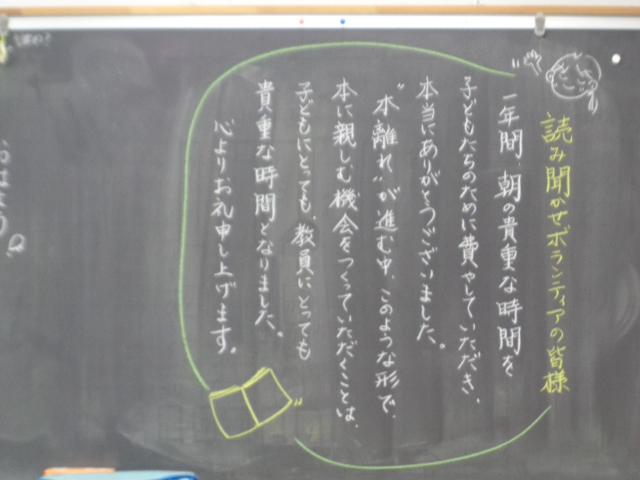 読み聞かせボランティアの皆様
一年間、朝の貴重な時間を
子どもたちのために費やしていただき、
本当にありがとうございました。
"本離れ"が進む中、このような形で、
本に親しむ機会をつくっていただくことは、
子どもにとっても、教員にとっても
貴重な時間となりました。
心よりお礼申し上げます。
おはよう